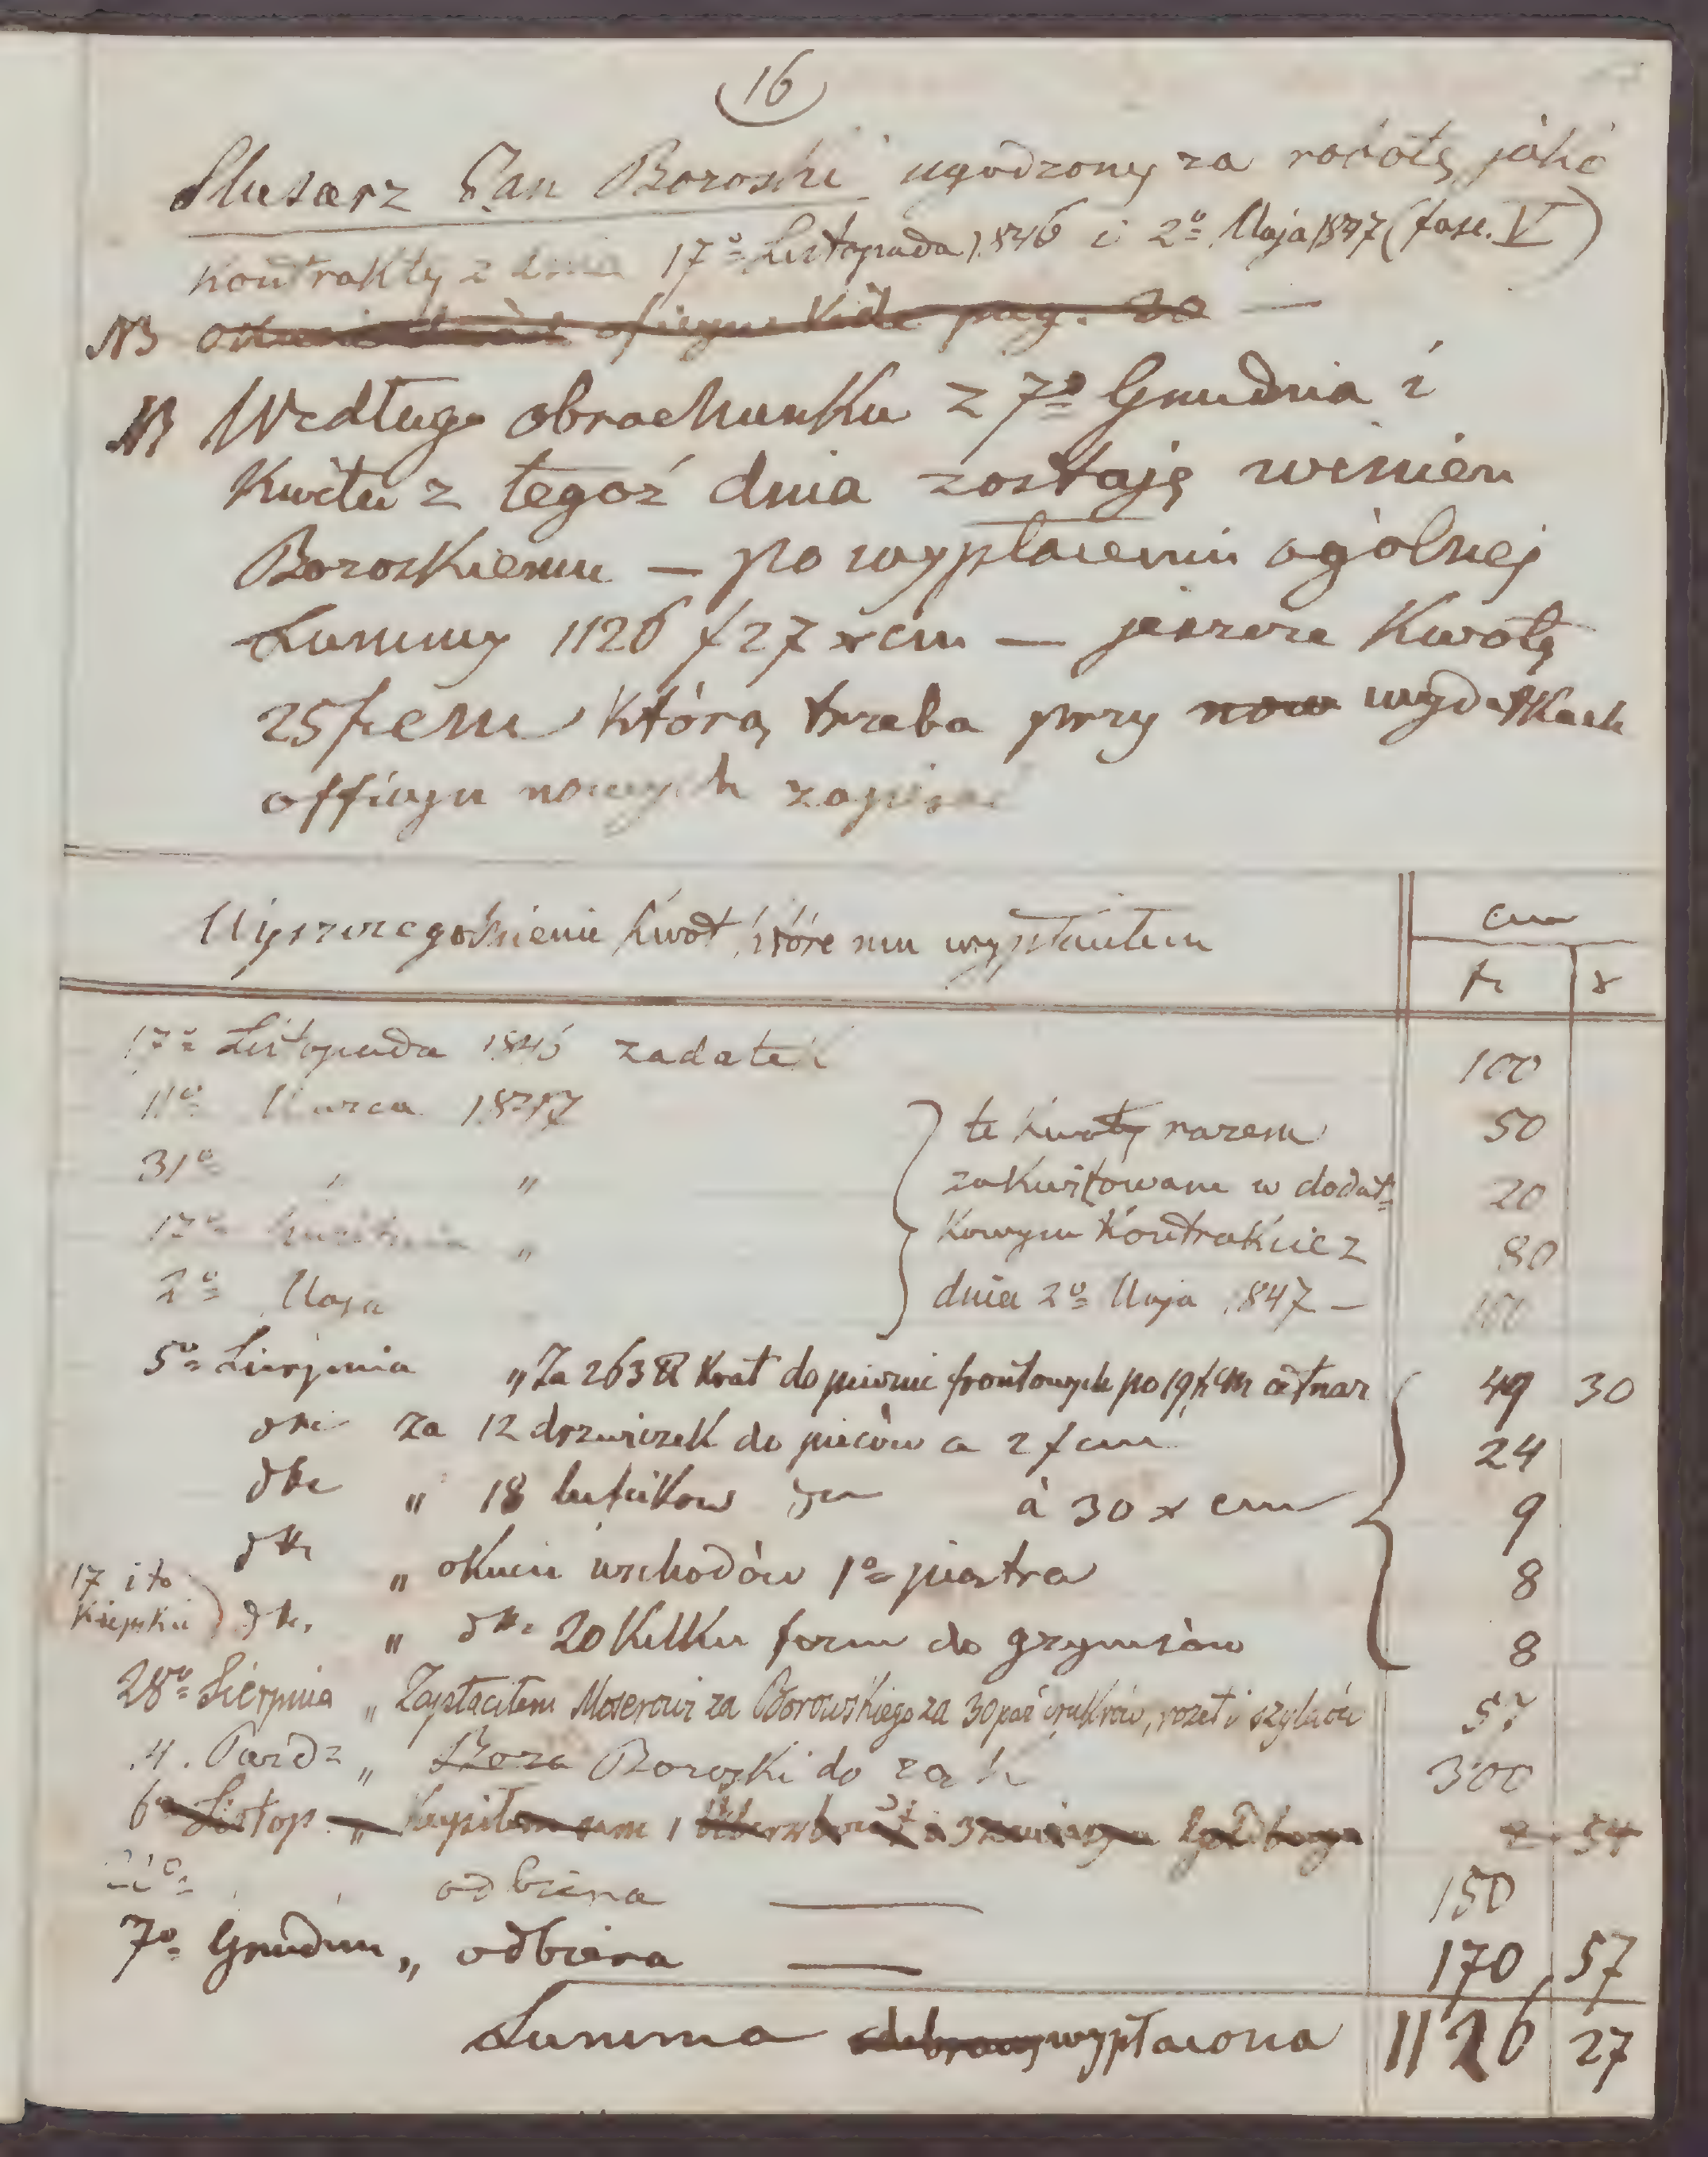 16
Slusarz Jan Boroski ugodzony za robotę jako
Kontrakty z dnia 17º Listopada 1846 i 2º Maja 1847 (fasc. V)
NB pag. 20 —
NB Według obrachunku z 7º Grudnia i
Kwitu z tegoż dnia zostaję winien
Boroskiemu — po wypłaceniu ogólnej
Summy 1126 f 27 x cm — jeszcze Kwotę
25 fr cm którą trzeba przy now wydatkach
officyn nowych zapisać
Wyszczegolnienie kwot które mu wypłaciłem
cm
fr x
17º Listopada 1846 zadatek 100
11º Marca 1847 te kwoty razem 50
31º " " zakwitowane w dodat= 20
17º Kwietnia " kowym Kontrakcie z 80
2º Maja dnia 2º Maja 1847 — 100
5º Sierpnia " Za 263 ℔ Krat do piwnic frontowych po 19 fr cm cetnar 49 30
za 12 drzwiczek do pieców a 2 f cm 24
" 18 lufcikow à 30 x cm 9
" okucie wschodów 1º piętra 8
17 i to " 20 Kilku form do gzymsów 8
28º Sierpnia " Zapłaciłem Moserowi za Borowskiego za 30 par rozet i szyldów 57
4. Paźdz " Boroski do rąk 300
6º Listop. " Kupiłem mu 1 2 54
22º odbiera — 150
7º Grudnia " odbiera — 170 57
Summa wypłacona 1126 27